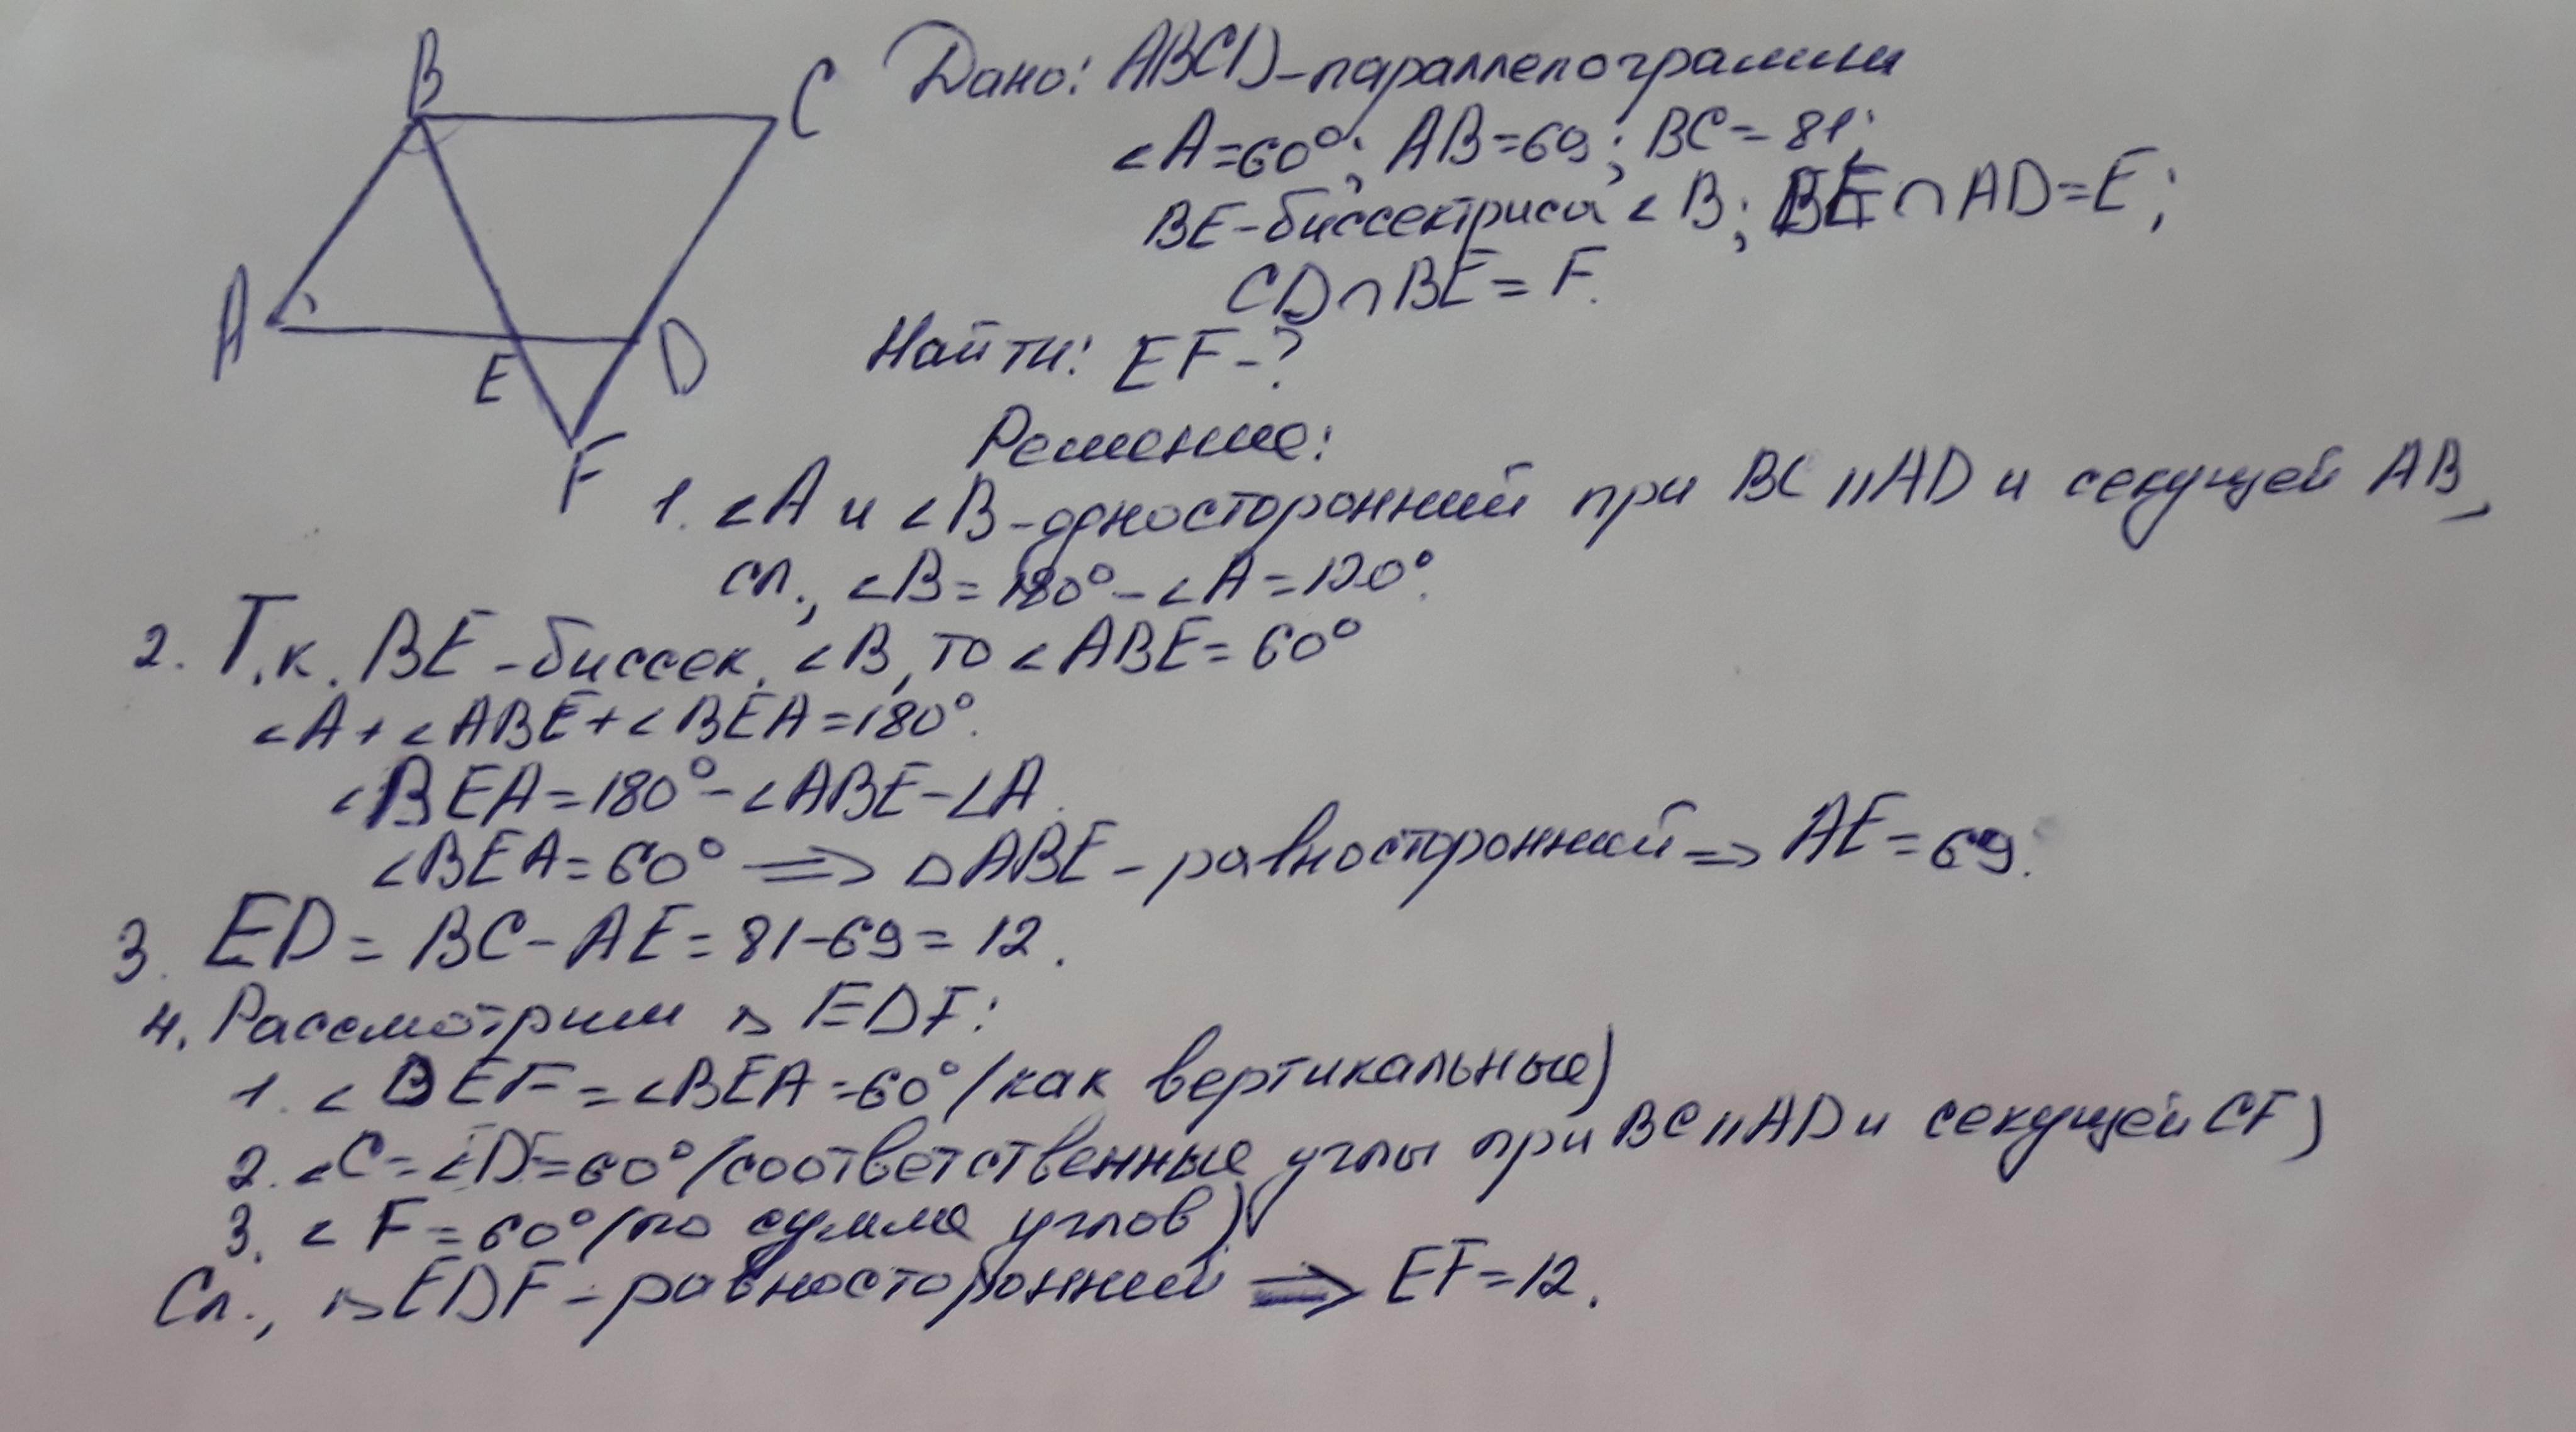 B
C
A
E
D
F
Дано: ABCD-параллелограмм
∠A=60°; AB=69; BC=81;
BE-биссектриса ∠B; BE∩AD=E;
CD∩BE=F.
Найти: EF-?
Решение:
1. ∠A и ∠B-односторонний при BC ıı AD и секущей AB,
сл., ∠B=180°-∠A=120°.
2. Т.к. BE-биссек. ∠B, то ∠ABE=60°
∠A+∠ABE+∠BEA=180°.
∠BEA=180°-∠ABE-∠A.
∠BEA=60° ⟹ △ABE-равносторонний ⇒ AE=69.
3. ED=BC-AE=81-69=12.
4. Рассмотрим △ EDF:
1. ∠DEF=∠BEA=60° (как вертикальные)
2. ∠C=∠D=60° (соответственные углы при BC ıı AD и секущей CF)
3. ∠F=60° (по сумме углов)
Сл., △EDF-равносторонний ⟹ EF=12.